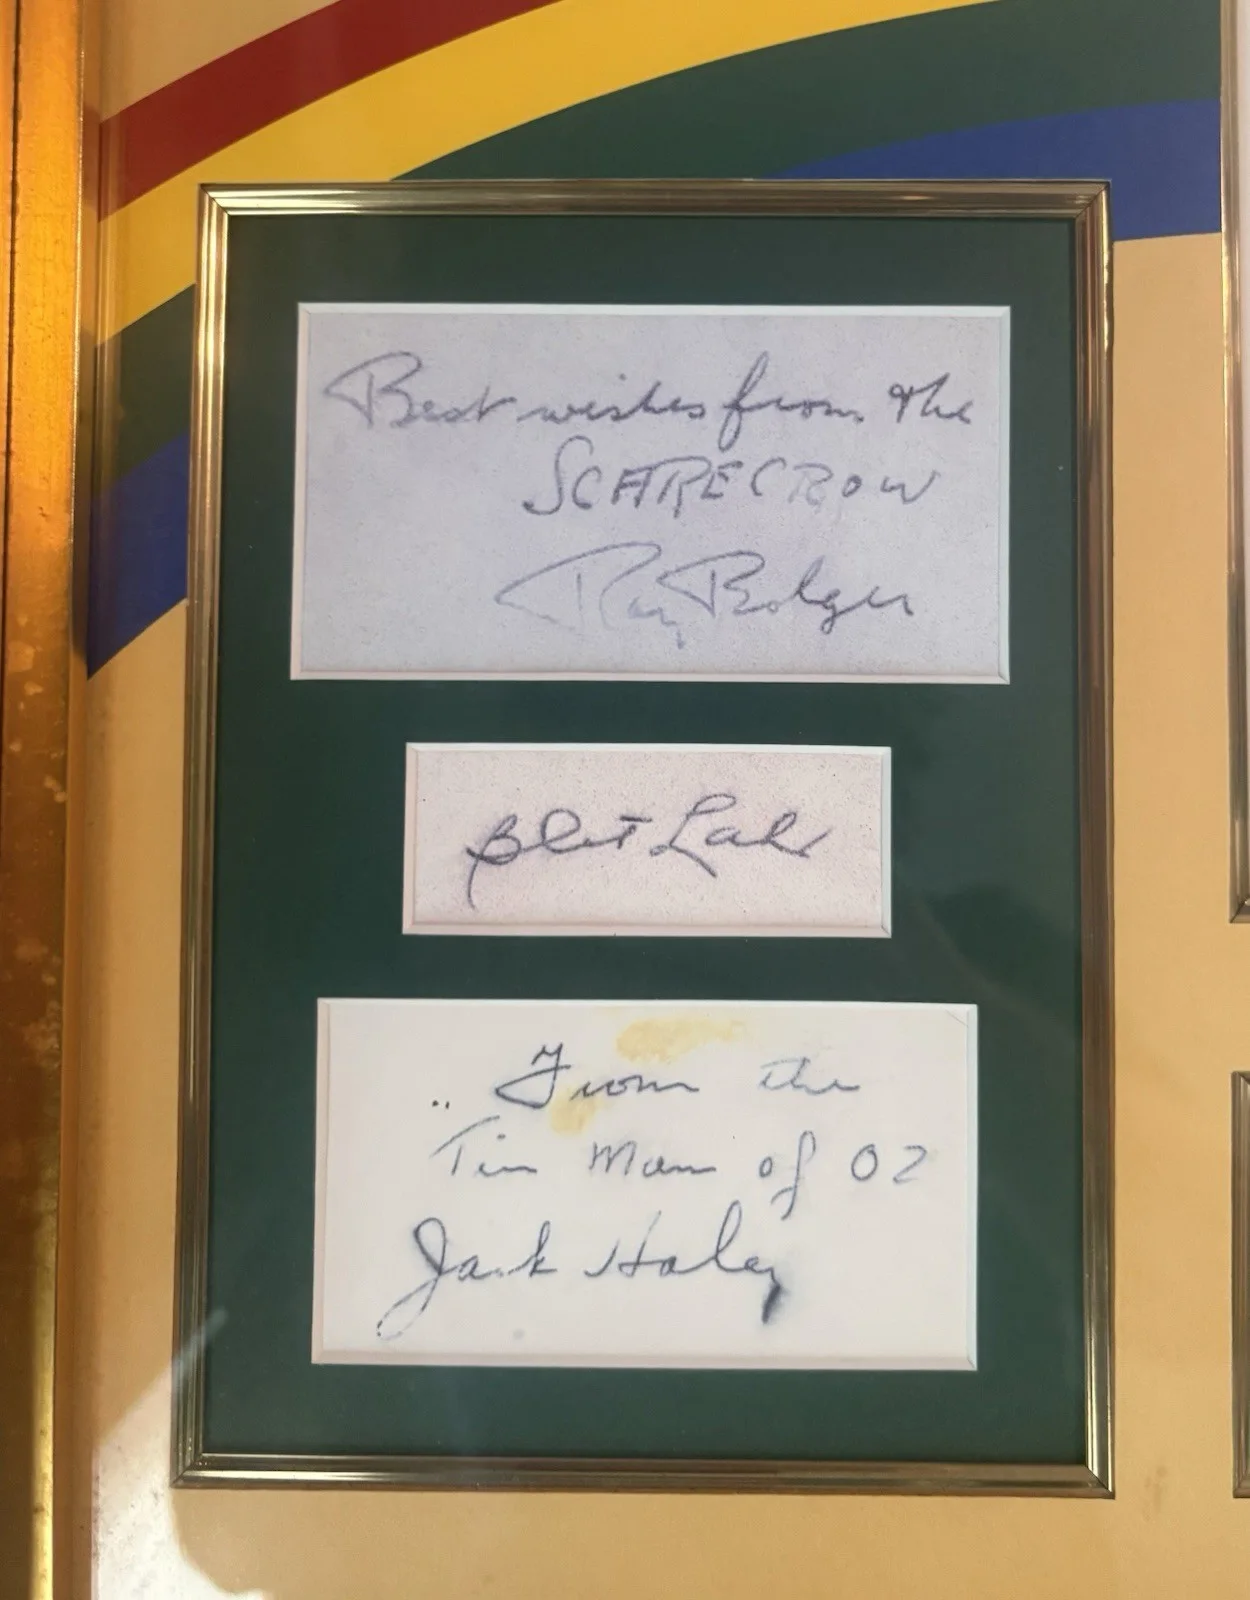 Best wishes from the
SCARECROW
Ray Bolger
Bert Lahr
.. From the
Tin Man of OZ
Jack Haley